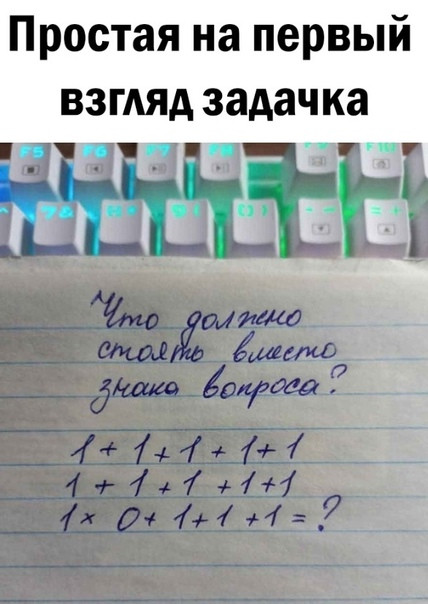 Простая на первый
взгляд задачка
F5 F6 F7 F8 F9 F10
7& 8* 9( 0) - - = +
Что должно
стоять вместо
знака вопроса?
1 + 1 + 1 + 1 + 1
1 + 1 + 1 + 1 + 1
1 × 0 + 1 + 1 + 1 = ?